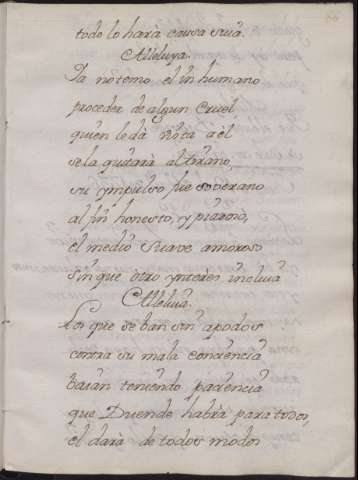 todo lo hara causa suia.
Alleluya.
Ia no temo el in humano
proceder de algun cruel
quien le dà nota a el
se la quitarà al tirano,
su ympulso fue soverano
al fin honesto, y piadoso,
el medio suave amoroso
sin que otro ynteres incluia
Alleluia.
Los que se ban sin apodos
contra su mala conciencia
baian teniendo paciencia
que Duende habrà para todos,
el darà de todos modos